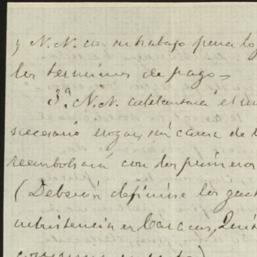 y N.N. con su trabajo para lo
los terminos de pago.
3.º N.N. adelantará el
necesario erogar, sin causa de
reembolsará con los primeros
(Deberán definirse los gast
subsistencia en Caracas, Quit